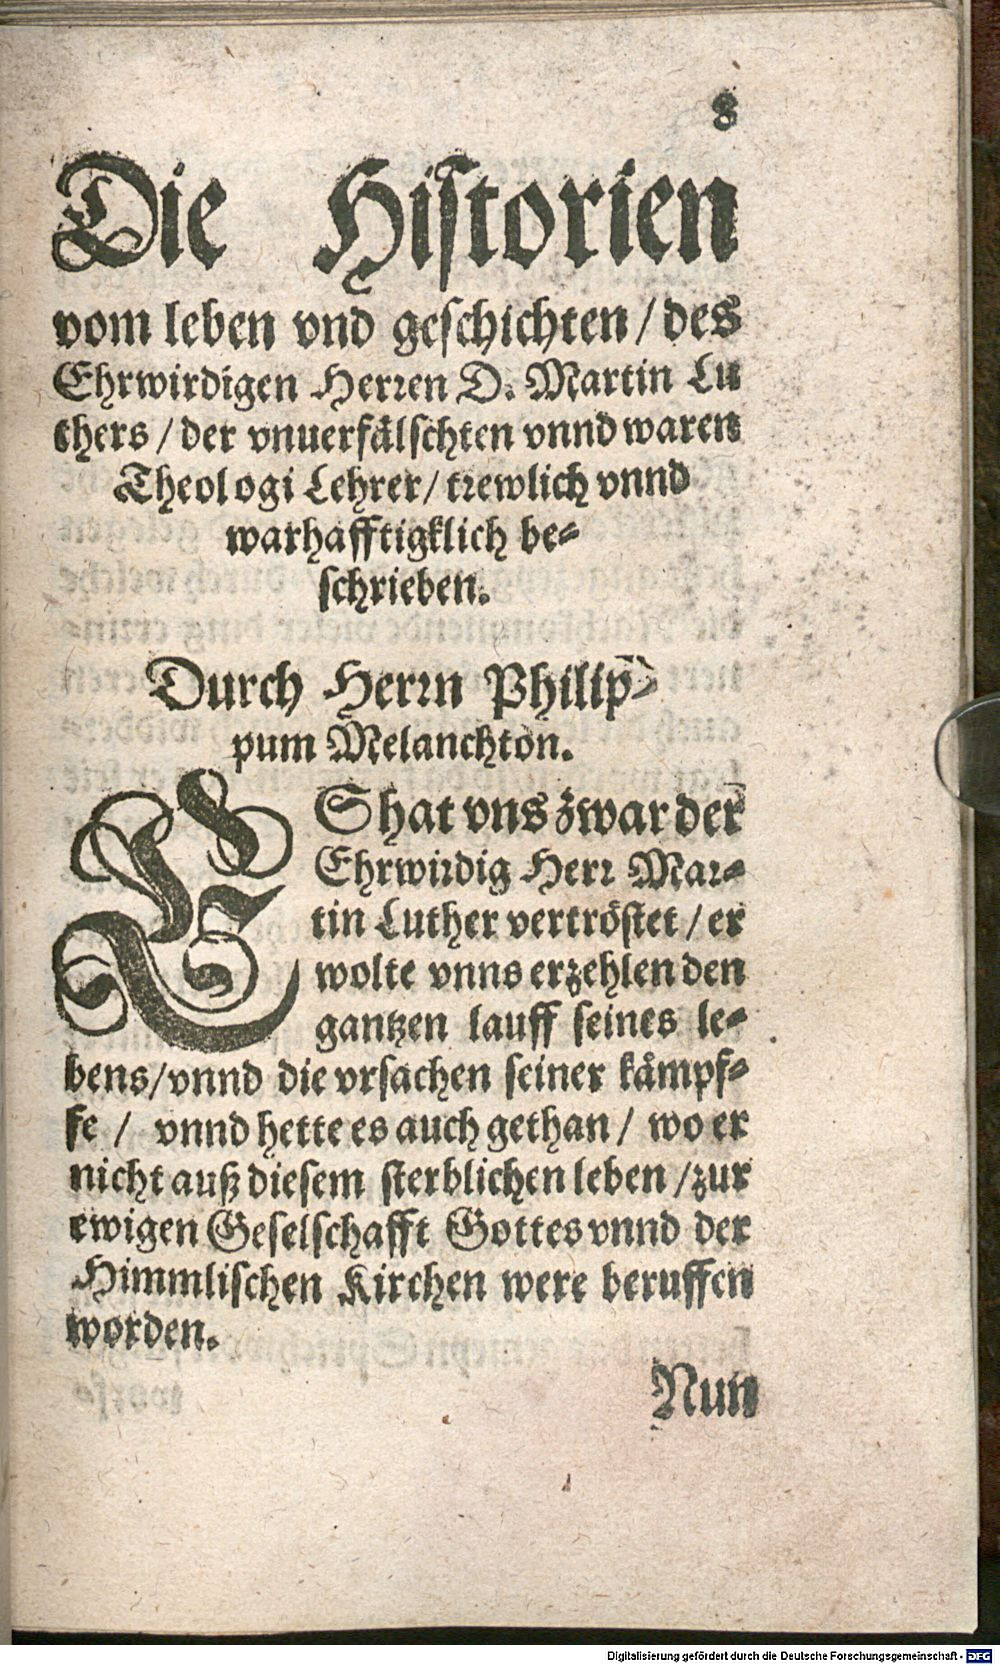 8
Die Historien
vom leben vnd geschichten / des
Ehrwirdigen Herren D. Martin Lu
thers / der vnuerfälschten vnnd waren
Theologi Lehrer / trewlich vnnd
warhafftigklich be-
schrieben.
Durch Herrn Philip-
pum Melanchton.
ES hat vns zwar der
Ehrwirdig Herr Mar-
tin Luther vertröstet / er
wolte vnns erzehlen den
gantzen lauff seines le-
bens / vnnd die vrsachen seiner kämpf-
fe / vnnd hette es auch gethan / wo er
nicht auß diesem sterblichen leben / zur
ewigen Geselschafft Gottes vnnd der
Himmlischen Kirchen were beruffen
worden.
Nun
Digitalisierung gefördert durch die Deutsche Forschungsgemeinschaft - DFG